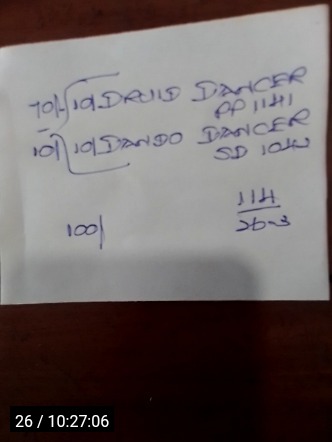 70/- 10/ DRUID DANCER
PP 1141
10/ 10/ DANDO DANCER
SD 1042
100/
114
26-3
26 / 10:27:06